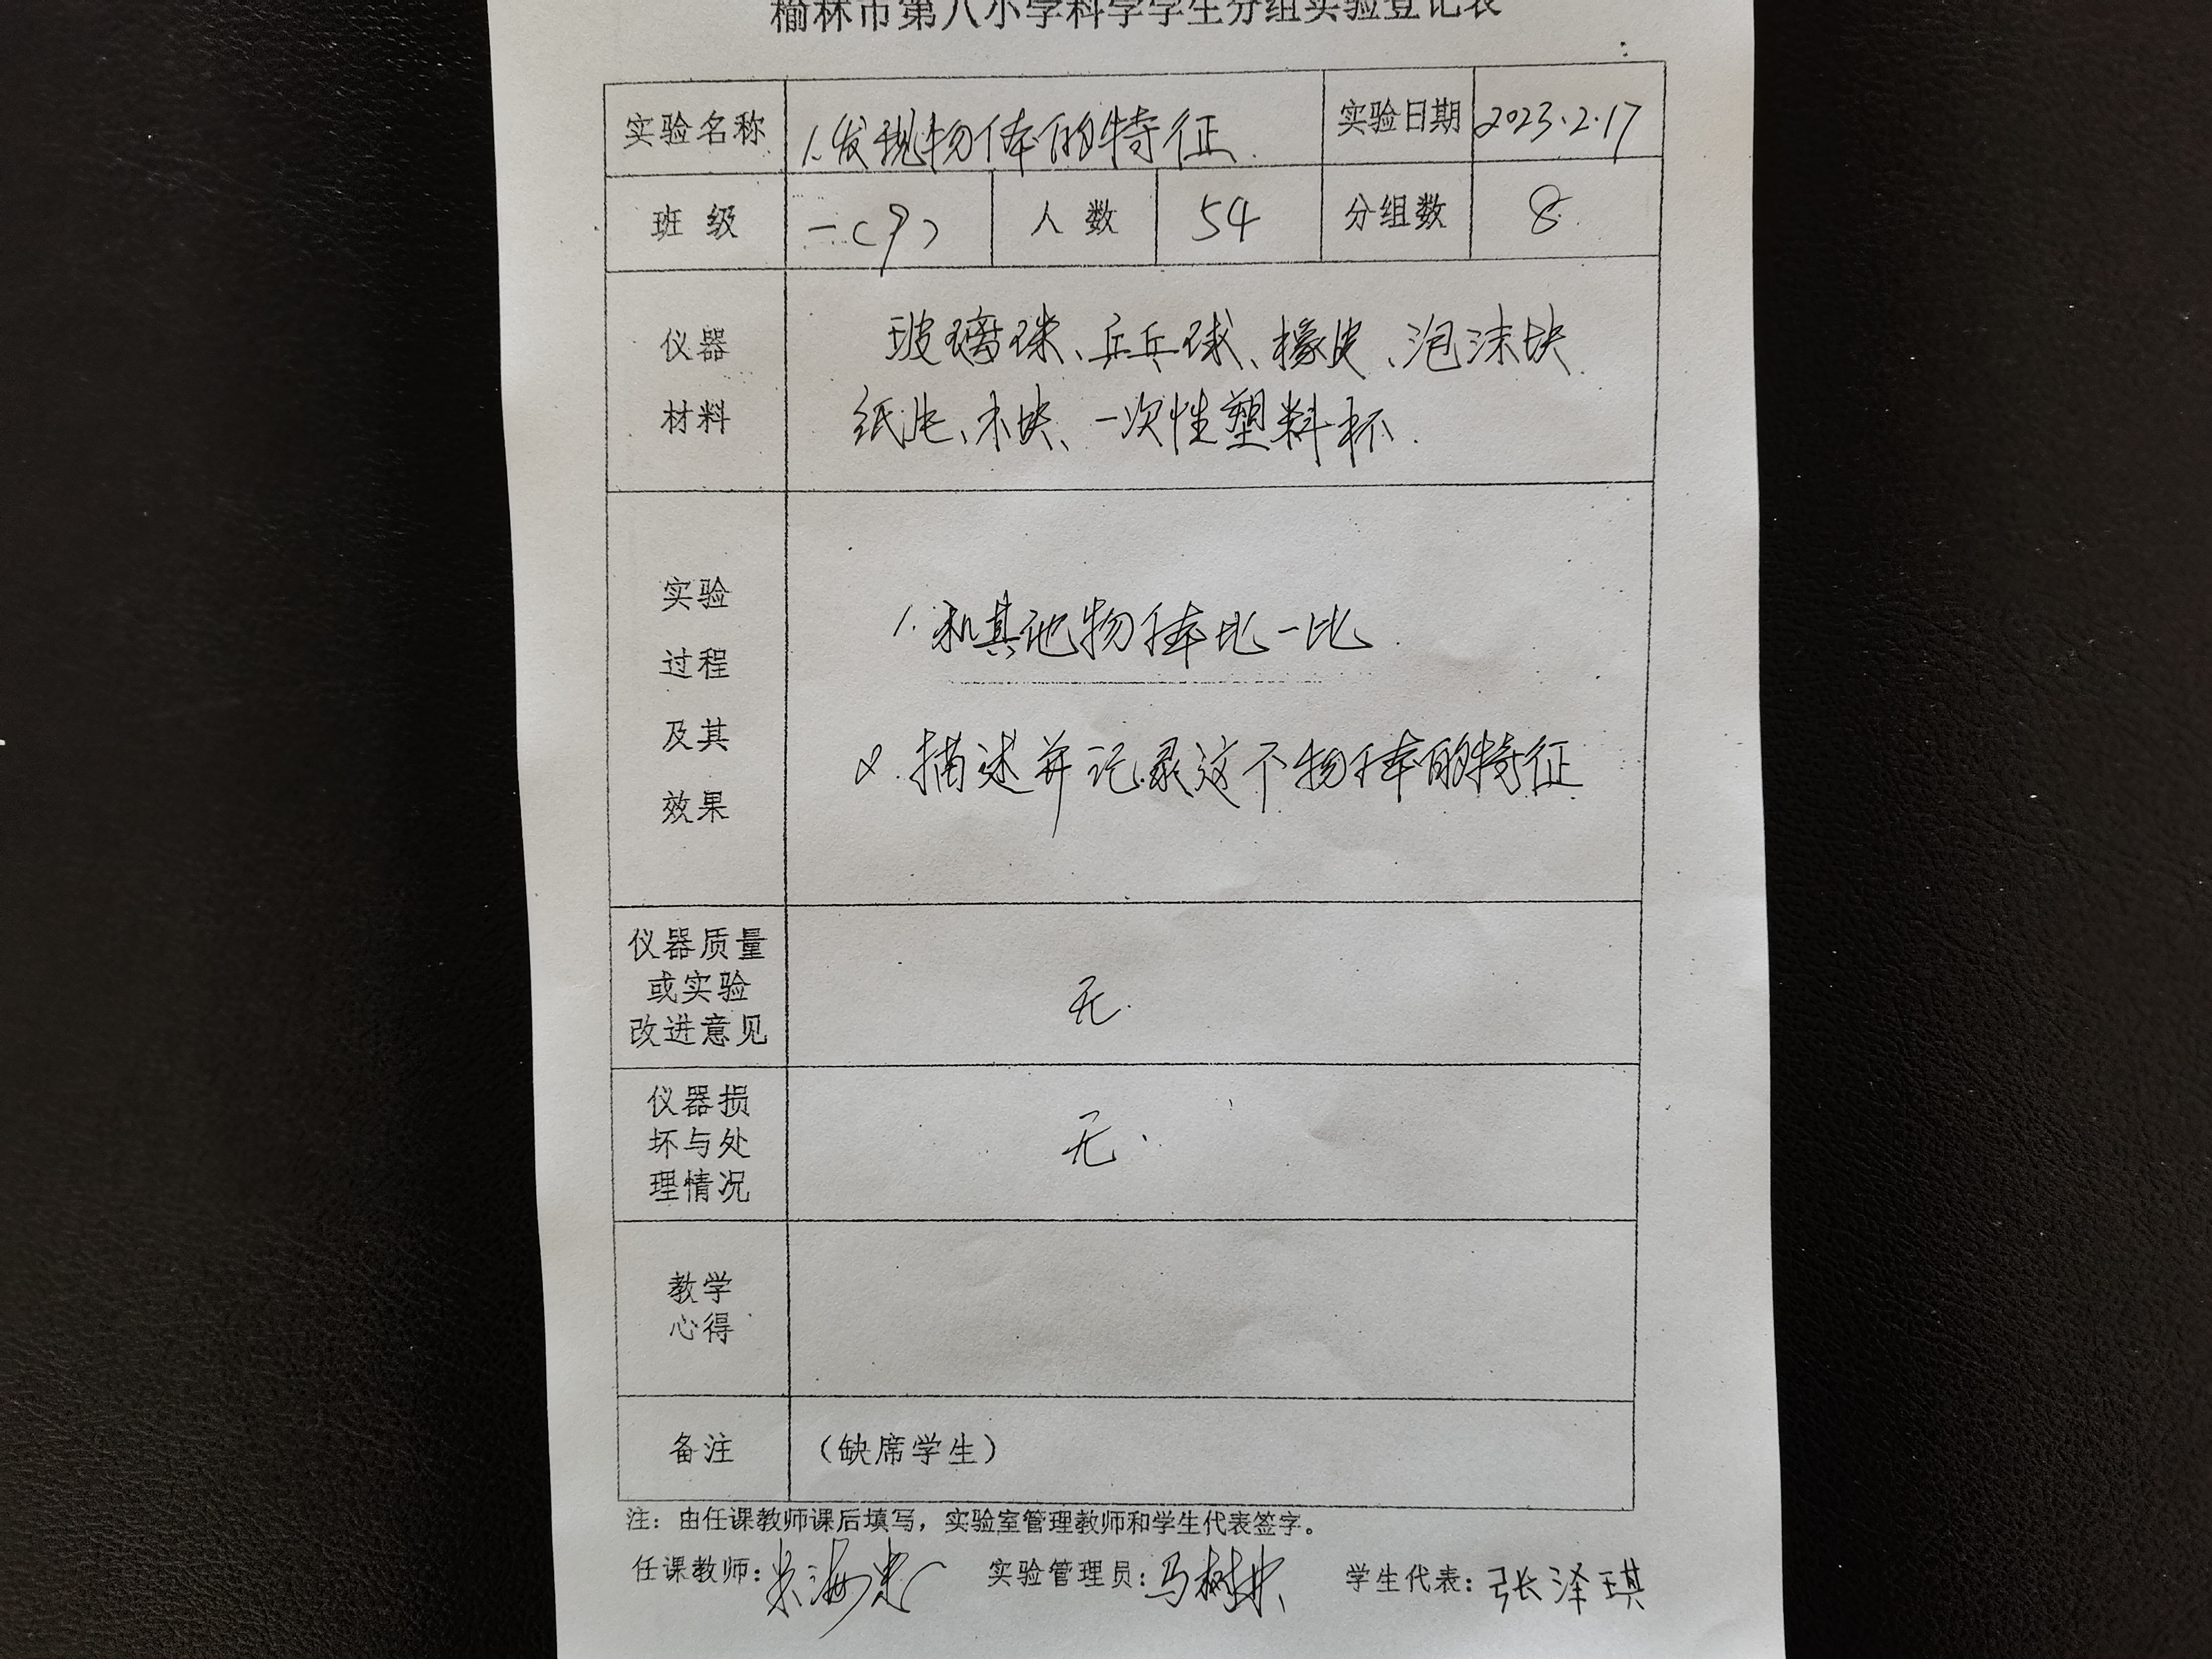 榆林市第八小学科学学生分组实验登记表
实验名称 1.发现物体的特征. 实验日期 2023.2.17
班级 一(9) 人数 54 分组数 8.
仪器
材料
玻璃球、乒乓球、橡皮、泡沫块
纸片、木块、一次性塑料杯.
实验
过程
及其
效果
1.和其他物体比一比.
2.描述并记录这个物体的特征
仪器质量
或实验
改进意见
无.
仪器损
坏与处
理情况
无.
教学
心得
备注 (缺席学生)
注：由任课教师课后填写，实验室管理教师和学生代表签字。
任课教师: 实验管理员:马树 学生代表:张泽琪